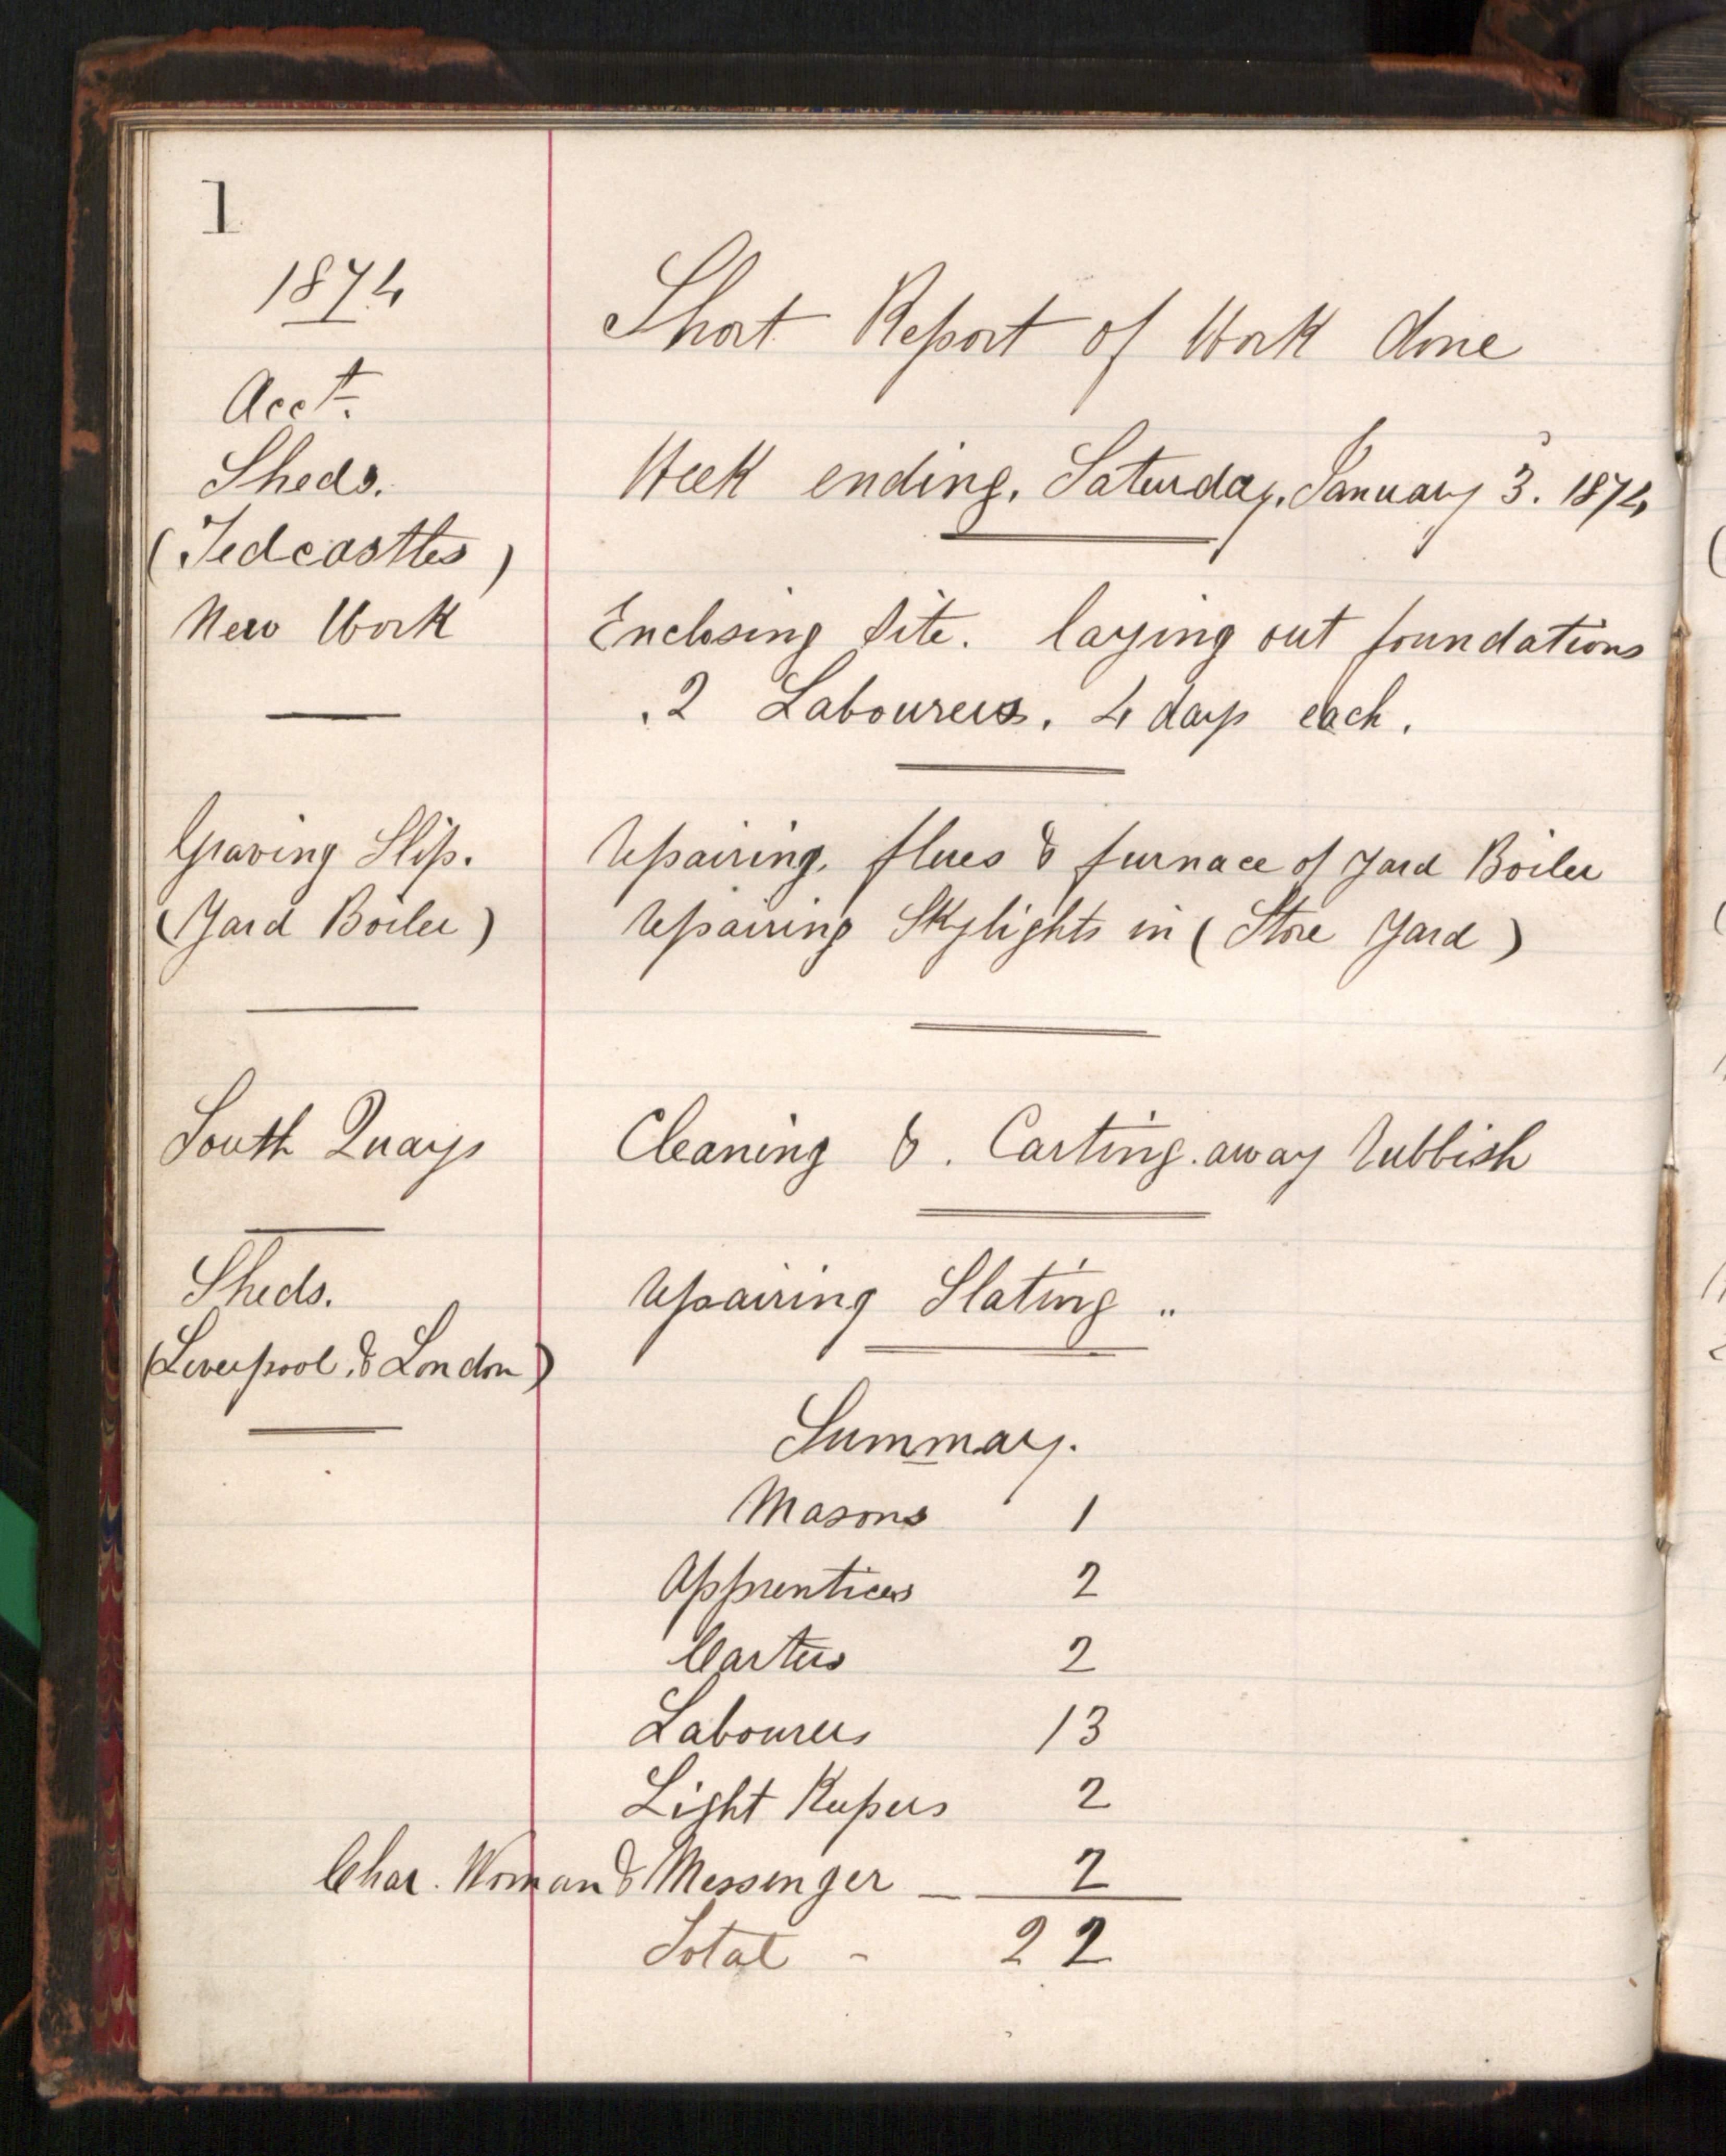 1
1874
Short Report of Work done
Acct.
Week ending, Saturday, January 3. 1874
Sheds.
(Tedcastles)
New Work
Enclosing Site. laying out foundations
. 2 Labourers. 4 days each.
Graving Slip.
(Yard Boiler)
Repairing, flues & furnace of Yard Boiler
Repairing Skylights in (Store Yard)
South Quays
Cleaning & . Carting away Rubbish
Sheds.
(Liverpool & London)
Repairing Slating ..
Summary.
Masons 1
Apprentices 2
Carters 2
Labourers 13
Light Keepers 2
Char. Woman & Messenger — 2
Total - 22